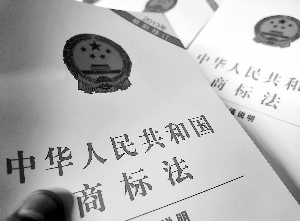 2013年
中华人民共和国
商标法
说明
中华人民共和国
商标法
说明